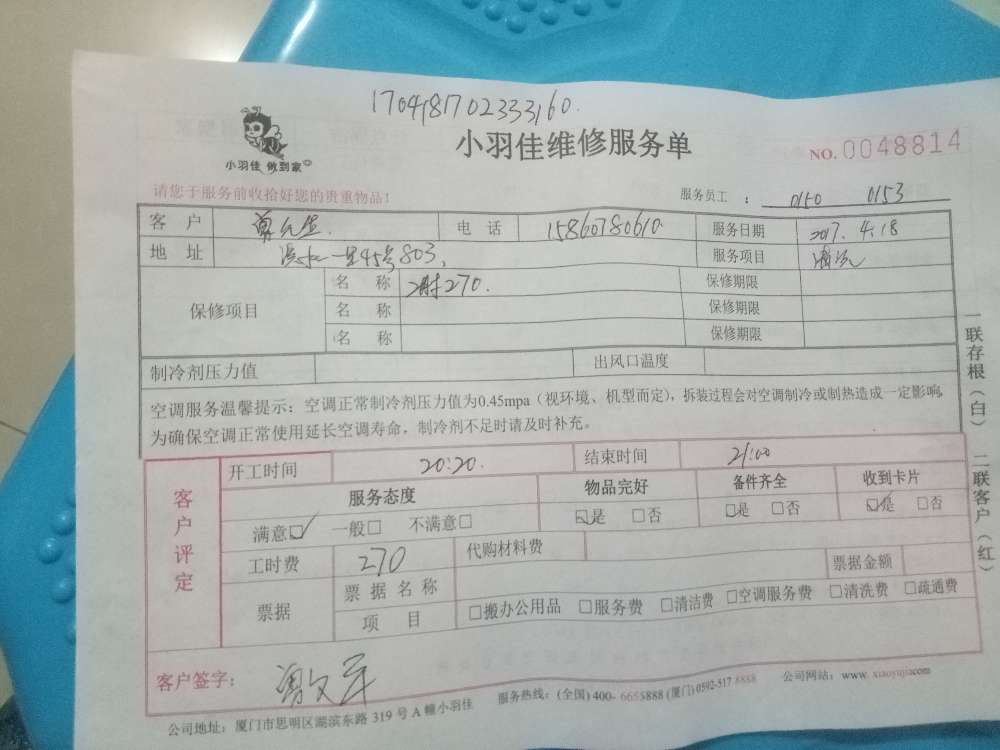 170418170233​3160.
小羽佳 做到家
小羽佳维修服务单
NO. 0048814
请您于服务前收拾好您的贵重物品!
服务员工 : 0150 0153
客 户 电 话 15860780610 服务日期 2017.4.18
地 址 一里45号803, 服务项目
保修项目 名 称 270. 保修期限
名 称 保修期限
名 称 保修期限
制冷剂压力值 出风口温度
空调服务温馨提示：空调正常制冷剂压力值为0.45mpa（视环境、机型而定），拆装过程会对空调制冷或制热造成一定影响，
为确保空调正常使用延长空调寿命，制冷剂不足时请及时补充。
客户评定
开工时间 20:20. 结束时间 21:00
服务态度 物品完好 备件齐全 收到卡片
满意☑ 一般□ 不满意□ ☑是 □否 ☑是 □否 ☑是 □否
工时费 270 代购材料费
票据 票 据 名 称 票据金额
项 目 □搬办公用品 □服务费 □清洁费 □空调服务费 □清洗费 □疏通费
客户签字：
公司地址：厦门市思明区湖滨东路 319 号 A 幢小羽佳 服务热线：(全国) 400- 6655888 (厦门) 0592-517 8888 公司网站：www. xiaoyujia.com
一联存根（白） 二联客户（红）